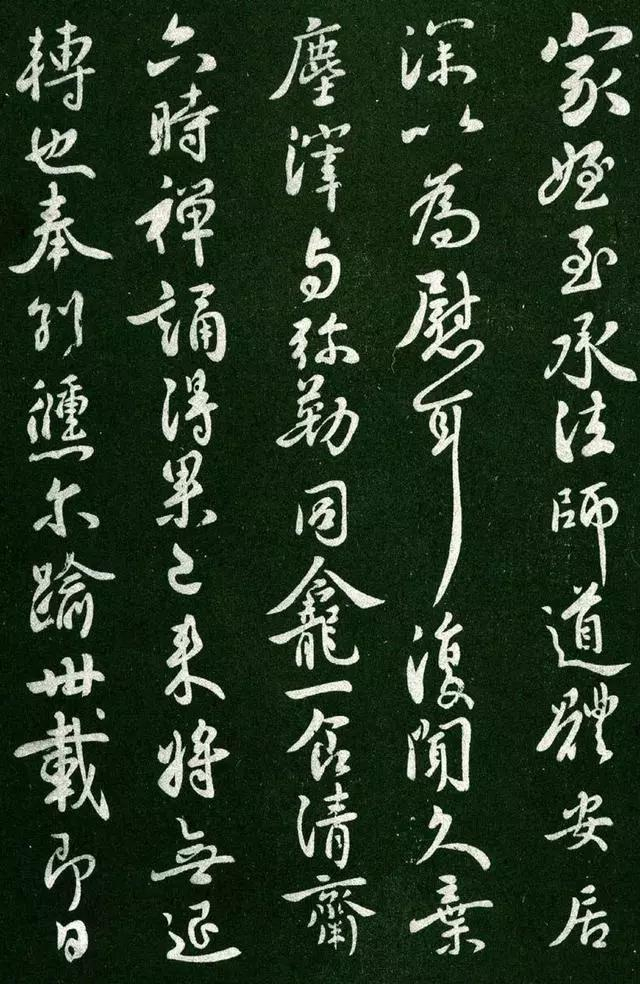 家姪至承法師道體安居
深以為慰耳復聞久棄
塵滓与弥勒同龕一食清齋
六時禅誦得果已来将無退
轉也奉別𫏐尒踰卅載即日